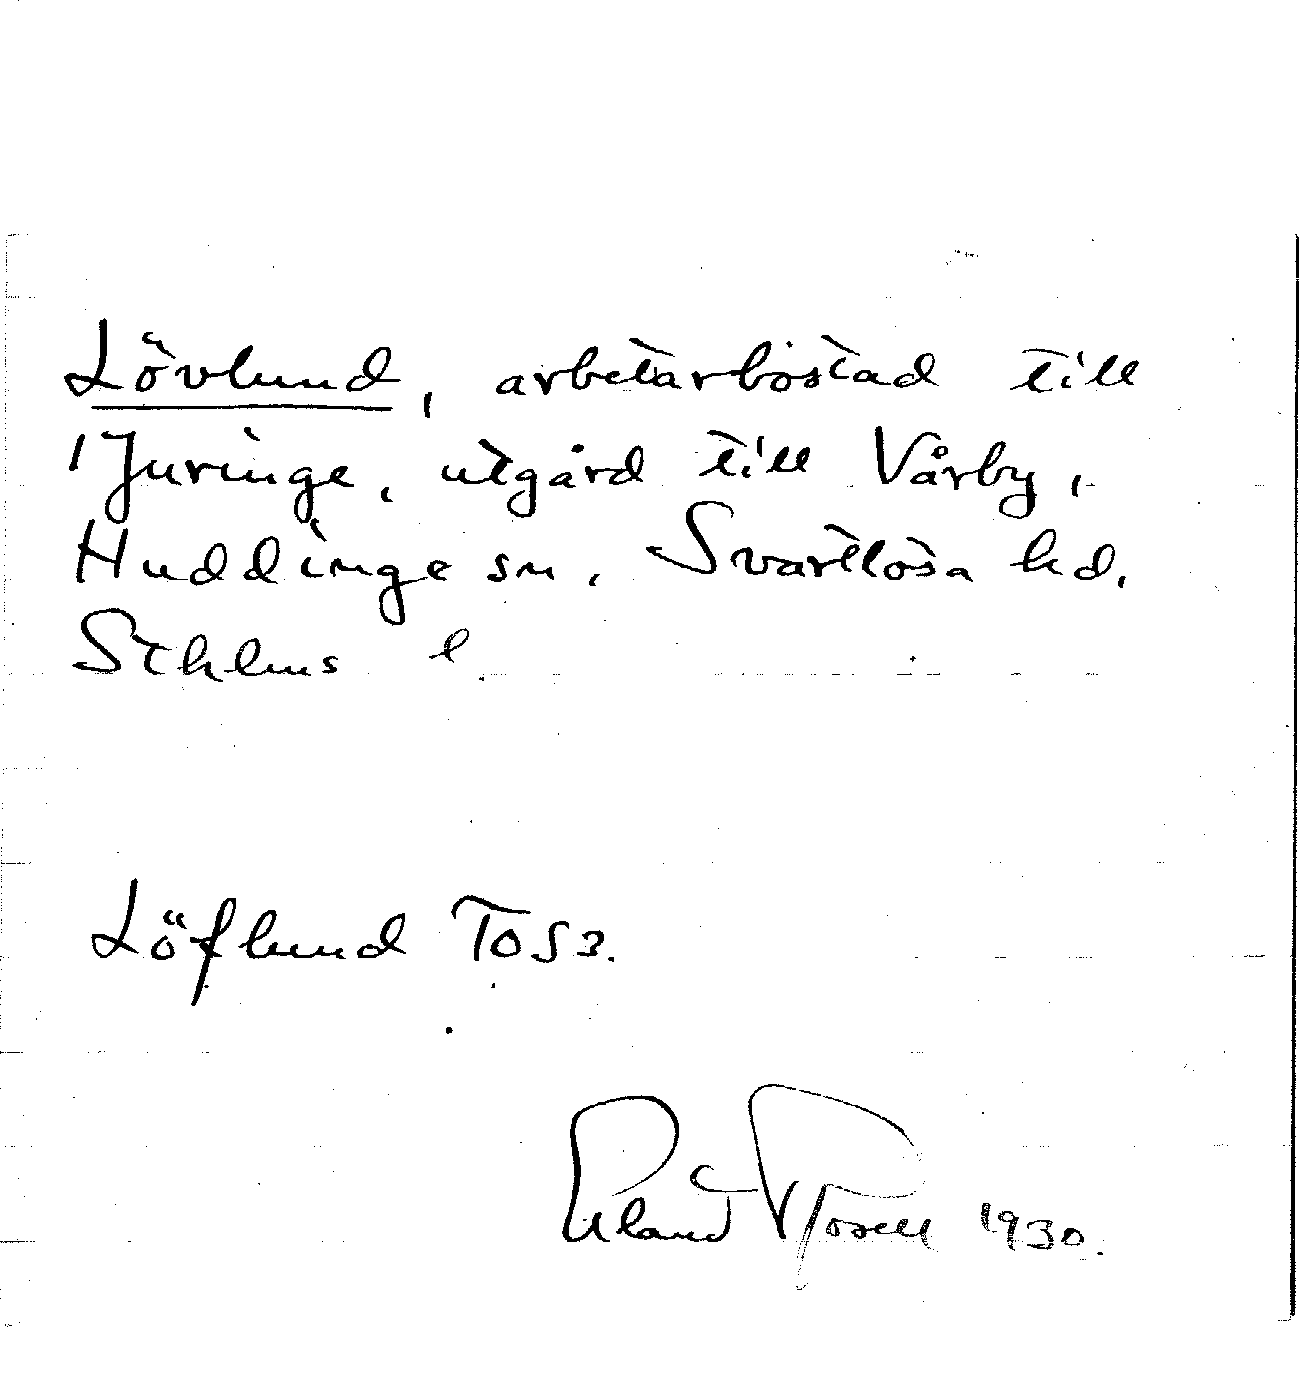 Lövlund, arbetarbostad till
Juringe, utgård till Vårby,
Huddinge sn, Svartlösa hd,
Sthlms l
Löflund TOS3.
1930.